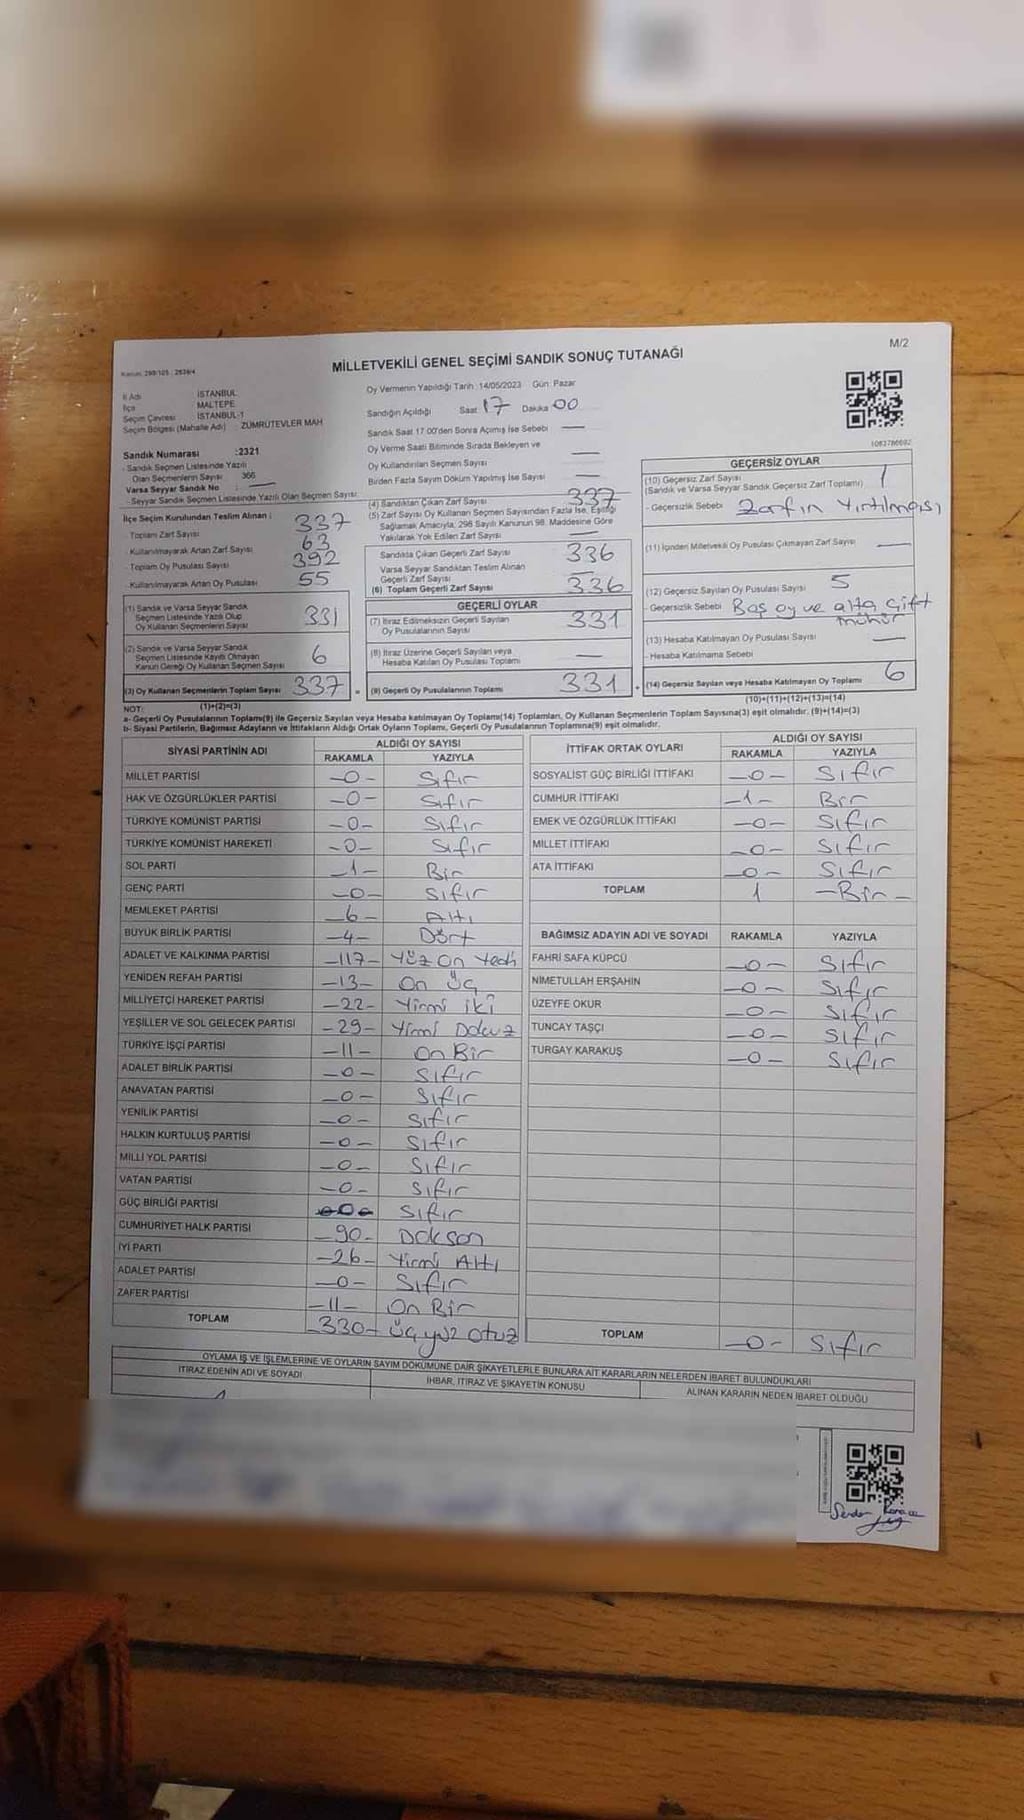 M/2
Kanun: 298/105 - 2839/4
MİLLETVEKİLİ GENEL SEÇİMİ SANDIK SONUÇ TUTANAĞI
İl Adı İSTANBUL
İlçe MALTEPE
Seçim Çevresi İSTANBUL-1
Seçim Bölgesi (Mahalle Adı) : ZÜMRÜTEVLER MAH
Oy Vermenin Yapıldığı Tarih : 14/05/2023 Gün: Pazar
Sandığın Açıldığı Saat 17 Dakika 00
Sandık Saat 17:00'den Sonra Açılmış İse Sebebi —
Oy Verme Saati Bitiminde Sırada Bekleyen ve
Oy Kullandırılan Seçmen Sayısı —
Birden Fazla Sayım Döküm Yapılmış İse Sayısı —
1083786692
Sandık Numarası :2321
- Sandık Seçmen Listesinde Yazılı
Olan Seçmenlerin Sayısı 366
Varsa Seyyar Sandık No : —
- Seyyar Sandık Seçmen Listesinde Yazılı Olan Seçmen Sayısı:
İlçe Seçim Kurulundan Teslim Alınan :
- Toplam Zarf Sayısı 337
- Kullanılmayarak Artan Zarf Sayısı 63
- Toplam Oy Pusulası Sayısı 392
- Kullanılmayarak Artan Oy Pusulası 55
(1) Sandık ve Varsa Seyyar Sandık
Seçmen Listesinde Yazılı Olup
Oy Kullanan Seçmenlerin Sayısı 331
(2) Sandık ve Varsa Seyyar Sandık
Seçmen Listesinde Kayıtlı Olmayan
Kanun Gereği Oy Kullanan Seçmen Sayısı 6
(3) Oy Kullanan Seçmenlerin Toplam Sayısı 337 =
(1)+(2)=(3)
(4) Sandıktan Çıkan Zarf Sayısı 337
(5) Zarf Sayısı Oy Kullanan Seçmen Sayısından Fazla İse, Eşitliği
Sağlamak Amacıyla, 298 Sayılı Kanunun 98. Maddesine Göre
Yakılarak Yok Edilen Zarf Sayısı —
Sandıkta Çıkan Geçerli Zarf Sayısı 336
Varsa Seyyar Sandıktan Teslim Alınan
Geçerli Zarf Sayısı —
(6) Toplam Geçerli Zarf Sayısı 336
GEÇERLİ OYLAR
(7) İtiraz Edilmeksizin Geçerli Sayılan
Oy Pusulalarının Sayısı 331
(8) İtiraz Üzerine Geçerli Sayılan veya
Hesaba Katılan Oy Pusulası Toplamı —
(9) Geçerli Oy Pusulalarının Toplamı 331 +
GEÇERSİZ OYLAR
(10) Geçersiz Zarf Sayısı 1
(Sandık ve Varsa Seyyar Sandık Geçersiz Zarf Toplamı)
- Geçersizlik Sebebi Zarfın Yırtılması
(11) İçinden Milletvekili Oy Pusulası Çıkmayan Zarf Sayısı —
(12) Geçersiz Sayılan Oy Pusulası Sayısı 5
- Geçersizlik Sebebi Boş oy ve alta çift
mühür
(13) Hesaba Katılmayan Oy Pusulası Sayısı —
- Hesaba Katılmama Sebebi
(14) Geçersiz Sayılan veya Hesaba Katılmayan Oy Toplamı 6
(10)+(11)+(12)+(13)=(14)
NOT:
a- Geçerli Oy Pusulalarının Toplamı(9) ile Geçersiz Sayılan veya Hesaba katılmayan Oy Toplamı(14) Toplamları, Oy Kullanan Seçmenlerin Toplam Sayısına(3) eşit olmalıdır. (9)+(14)=(3)
b- Siyasi Partilerin, Bağımsız Adayların ve İttifakların Aldığı Ortak Oyların Toplamı, Geçerli Oy Pusulalarının Toplamına(9) eşit olmalıdır.
SİYASİ PARTİNİN ADI ALDIĞI OY SAYISI
RAKAMLA YAZIYLA
MİLLET PARTİSİ -0- Sıfır
HAK VE ÖZGÜRLÜKLER PARTİSİ -0- Sıfır
TÜRKİYE KOMÜNİST PARTİSİ -0- Sıfır
TÜRKİYE KOMÜNİST HAREKETİ -0- Sıfır
SOL PARTİ -1- Bir
GENÇ PARTİ -0- Sıfır
MEMLEKET PARTİSİ -6- Altı
BÜYÜK BİRLİK PARTİSİ -4- Dört
ADALET VE KALKINMA PARTİSİ -117- Yüz On Yedi
YENİDEN REFAH PARTİSİ -13- On Üç
MİLLİYETÇİ HAREKET PARTİSİ -22- Yirmi iki
YEŞİLLER VE SOL GELECEK PARTİSİ -29- Yirmi Dokuz
TÜRKİYE İŞÇİ PARTİSİ -11- On Bir
ADALET BİRLİK PARTİSİ -0- Sıfır
ANAVATAN PARTİSİ -0- Sıfır
YENİLİK PARTİSİ -0- Sıfır
HALKIN KURTULUŞ PARTİSİ -0- Sıfır
MİLLİ YOL PARTİSİ -0- Sıfır
VATAN PARTİSİ -0- Sıfır
GÜÇ BİRLİĞİ PARTİSİ -0- Sıfır
CUMHURİYET HALK PARTİSİ -90- Doksan
İYİ PARTİ -26- Yirmi Altı
ADALET PARTİSİ -0- Sıfır
ZAFER PARTİSİ -11- On Bir
TOPLAM -330- üçyüz otuz
İTTİFAK ORTAK OYLARI ALDIĞI OY SAYISI
RAKAMLA YAZIYLA
SOSYALİST GÜÇ BİRLİĞİ İTTİFAKI -0- Sıfır
CUMHUR İTTİFAKI -1- Bir
EMEK VE ÖZGÜRLÜK İTTİFAKI -0- Sıfır
MİLLET İTTİFAKI -0- Sıfır
ATA İTTİFAKI -0- Sıfır
TOPLAM 1 -Bir-
BAĞIMSIZ ADAYIN ADI VE SOYADI RAKAMLA YAZIYLA
FAHRİ SAFA KÜPCÜ -0- Sıfır
NİMETULLAH ERŞAHİN -0- Sıfır
ÜZEYFE OKUR -0- Sıfır
TUNCAY TAŞÇI -0- Sıfır
TURGAY KARAKUŞ -0- Sıfır
TOPLAM -0- Sıfır
OYLAMA İŞ VE İŞLEMLERİNE VE OYLARIN SAYIM DÖKÜMÜNE DAİR ŞİKAYETLERLE BUNLARA AİT KARARLARIN NELERDEN İBARET BULUNDUKLARI
İTİRAZ EDENİN ADI VE SOYADI İHBAR, İTİRAZ VE ŞİKAYETİN KONUSU ALINAN KARARIN NEDEN İBARET OLDUĞU